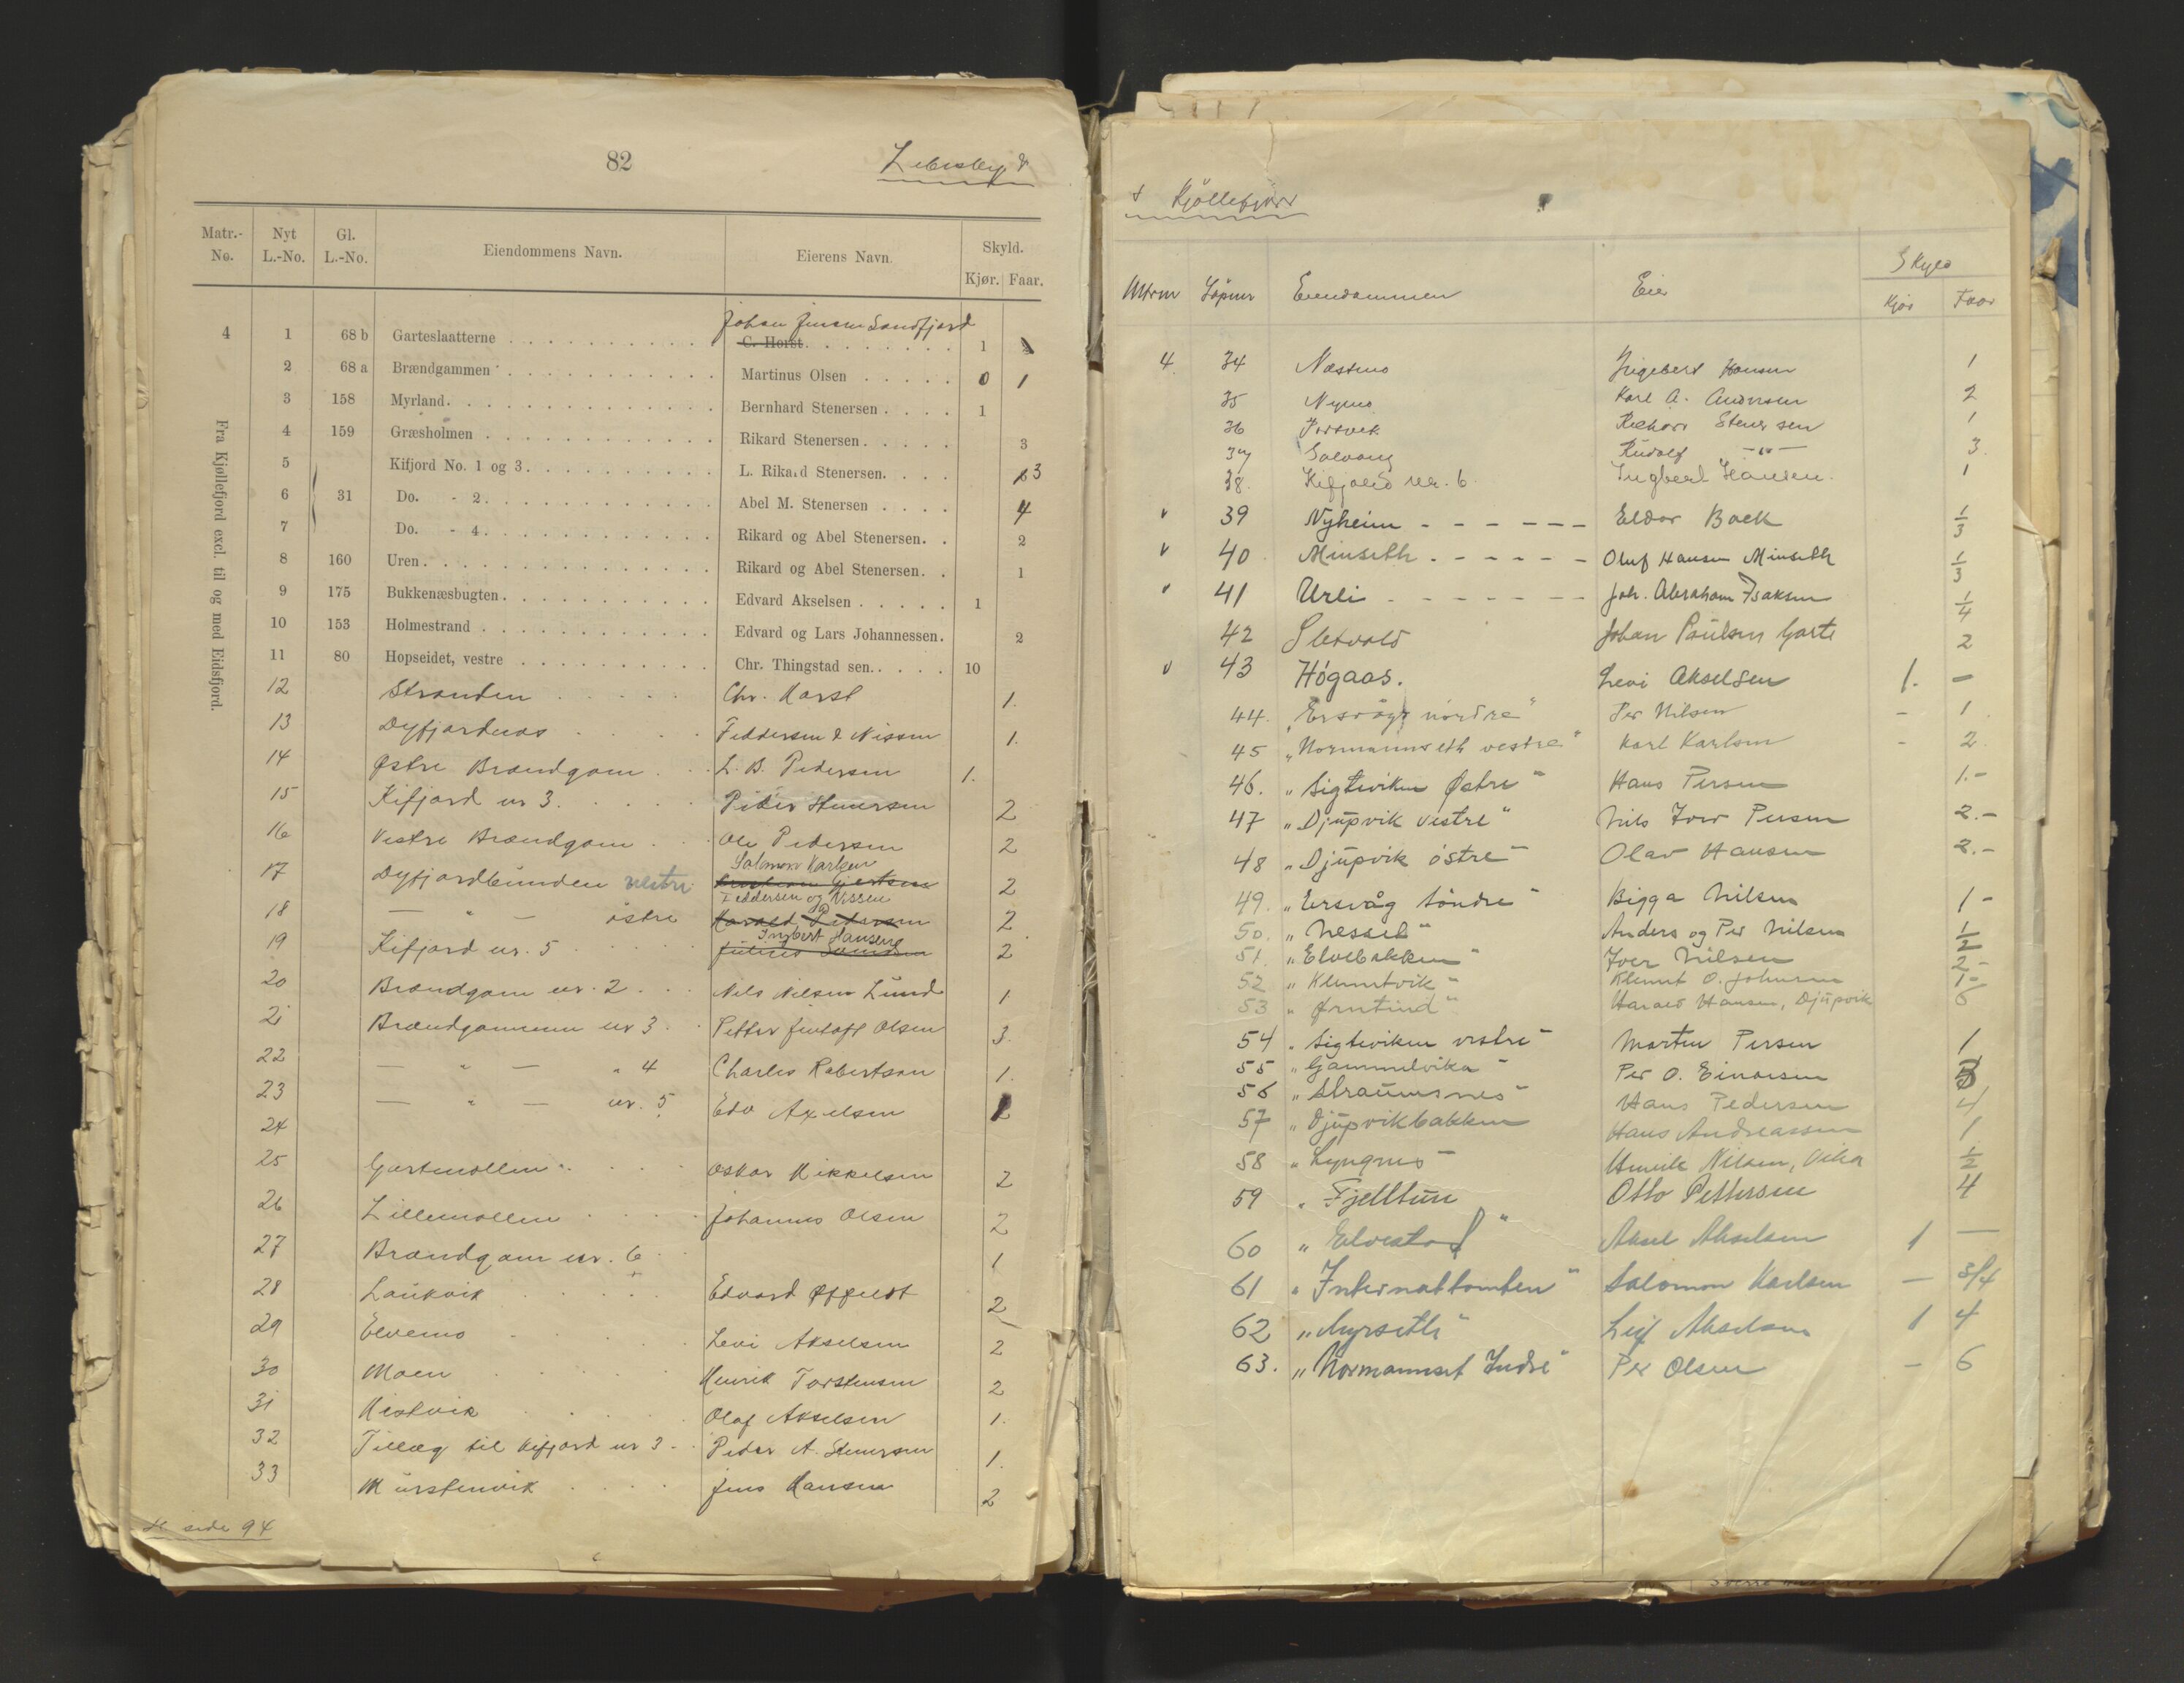 82
Matr.-No. Nyt L.-No. Gl. L.-No. Eiendommens Navn. Eierens Navn. Skyld. Kjør. Faar.
Fra Kjøllefjord excl. til og med Eidsfjord.
Johan Jensen Sandfjord
4 1 68 b Garteslaatterne C. Horst 1
2 68 a Brændgammen Martinus Olsen 0 1
3 158 Myrland Bernhard Stenersen 1
4 159 Græsholmen Rikard Stenersen 3
5 Kifjord No. 1 og 3 L. Rikard Stenersen 3
6 31 Do. - 2 Abel M. Stenersen 4
7 Do. - 4 Rikard og Abel Stenersen 2
8 160 Uren Rikard og Abel Stenersen 1
9 175 Bukkenæsbugten Edvard Akselsen 1
10 153 Holmestrand Edvard og Lars Johannessen 2
11 80 Hopseidet, vestre Chr. Thingstad sen. 10
12 Stranden Chr. Horst 1.
13 Dyfjordnæs Feddersen & Nissen 1.
14 Østre Brændgam L. B. Pedersen 1.
15 Kifjord nr 3. Peder Stenersen 2
16 Vestre Brændgam Ole Pedersen 2
Salomon Karlsen
17 Dyfjordbunden vestre 2
Feddersen og Nissen
18 — " — østre Harald Pedersen 2
Ingbert Hansen
19 Kifjord nr. 5 2
20 Brændgam nr. 2 Nils Nilsen Lund 1.
21 Brændgammen nr 3 Petter Olsen 3.
22 — " — " 4 Charles Robertsen 1.
23 — " — nr. 5 Edv Axelsen
24
25 Gartmollen Oskar Mikkelsen 2
26 Lillemollen Johannes Olsen 2
27 Brændgam nr. 6 1
28 Laukvik Edvard 2
29 Elvemo Levi Akselsen 2
30 Moen Henrik Torstensen 2
31 Olaf Akselsen 1.
32 Tillæg til Kifjord nr 3 Peder A. Stenersen 1.
33 Jens Hansen 2
side 94
Kjøllefjord
Mtrnr Löpnr Eiendommen Eier Skyld Kjør Faar
4 34 Næstmo Ingebert Hansen 1
35 Nymo Karl A. Andersen 2
36 Rickard Stenersen 1
37 Solvang Rudolf —"— 3.
38. Kifjord nr. 6. Ingbert Hansen. 1
v 39 Nyheim Eldor Back 1/3
v 40 Minseth Oluf Hansen Minseth 1/3
v 41 Urli Joh. Abraham Isaksen 1/4
42 Sletvold Johan Paulsen Garte 2
v 43 Högaas. Levi Akselsen 1. —
44. "Ersvåg nordre" Per Nilsen - 1
45 "Normannseth vestre" Karl Karlsen - 2.
46. "Sigtevikken Østre" Hans Persen 1.-
47 "Djupvik vestre" Nils Iver Persen 2.-
48 "Djupvik östre" Olav Hansen 2.-
49. "Ersvåg Söndre" Bigga Nilsen 1 -
50. "Nesset" Anders og Per Nilsen 1/2
51. "Elvebakken" Iver Nilsen 2-
52 "Klemetvik" Klemet O. Johnsen 1-
53 "Ørntind" Harald Hansen, Djupvik 6
54 "Sigtevikken vestre" Morten Persen 1
55 "Gammelvika" Per O. Einarsen 3
56 "Straumsnes" Hans Pedersen 4
57 "Djupvikbakken Hans Andreassen 1
58 "Lyngnes" Nilsen, Vika 1/2
59 "Fjelltun Otto Pettersen 4
60 "Elvestad" Aksel Akselsen 1 —
61 "Internattomten" Salomon Karlsen — 3/4
62 "Myrseth" Leif Akselsen 1 4
63. "Normannset Indre" Per Olsen - 6